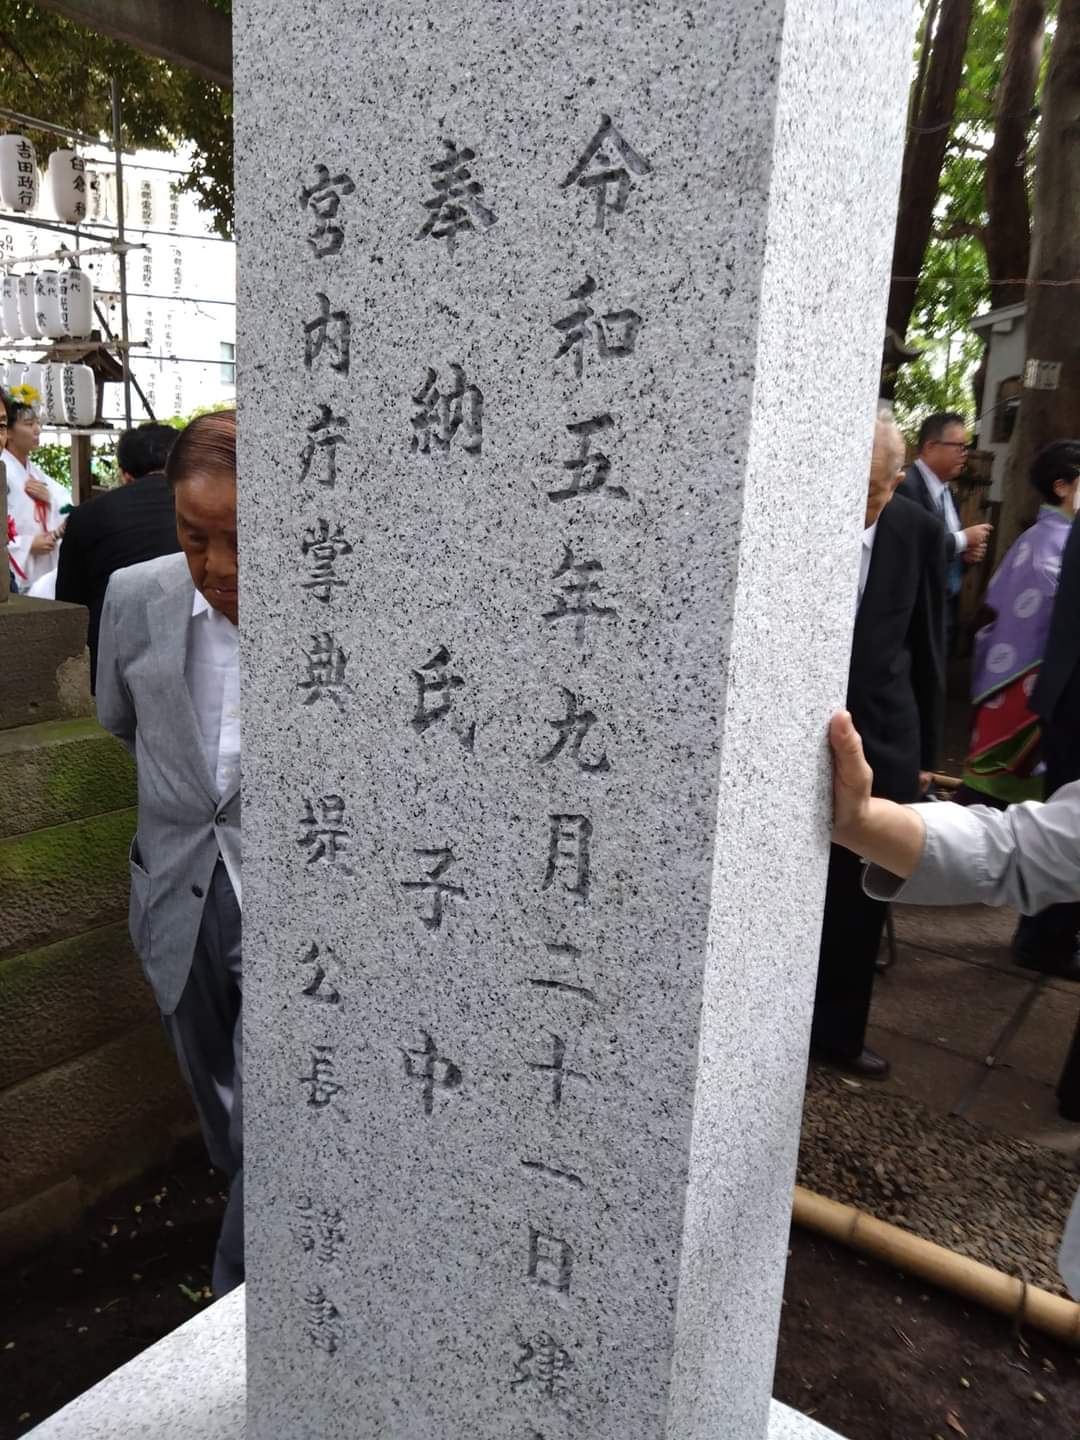 令和五年九月二十一日建
奉納 氏子中
宮内庁掌典 堤公長 謹書
吉田政行